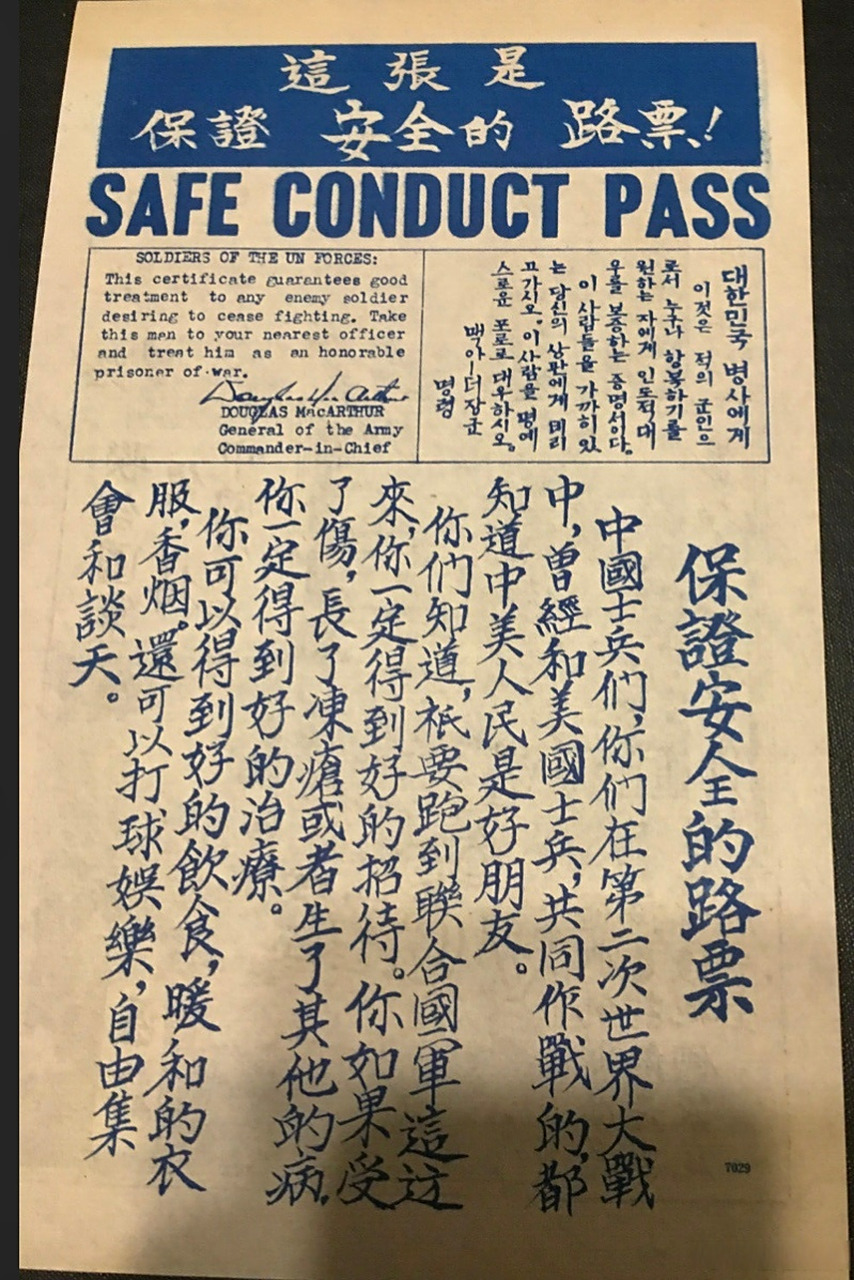 這張是
保證 安全的 路票!
SAFE CONDUCT PASS
SOLDIERS OF THE UN FORCES:
This certificate guarantees good
treatment to any enemy soldier
desiring to cease fighting. Take
this man to your nearest officer
and treat him as an honorable
prisoner of war.
Douglas MacArthur
DOUGLAS MacARTHUR
General of the Army
Commander-in-Chief
대한민국 병사에게
이것은 적의 군인으
로서 누구나 항복하기를
원하는 자에게 인도적 대
우를 보증하는 증명서다.
이 사람들을 가까히 있
는 당신의 상관에게 데리
고가시오. 이 사람을 명예
스로운 포로로 대우하시오.
맥아ー더장군
명령
保證安全的路票
中國士兵们,你们在第二次世界大戰
中,曾經和美國士兵,共同作戰的,都
知道中美人民是好朋友。
你们知道,祇要跑到聯合國軍這边
來,你一定得到好的招待。你如果受
了傷,長了凍瘡或者生了其他的病,
你一定得到好的治療。
你可以得到好的飲食,暖和的衣
服,香烟。還可以打球娛樂,自由集
會和談天。
7029